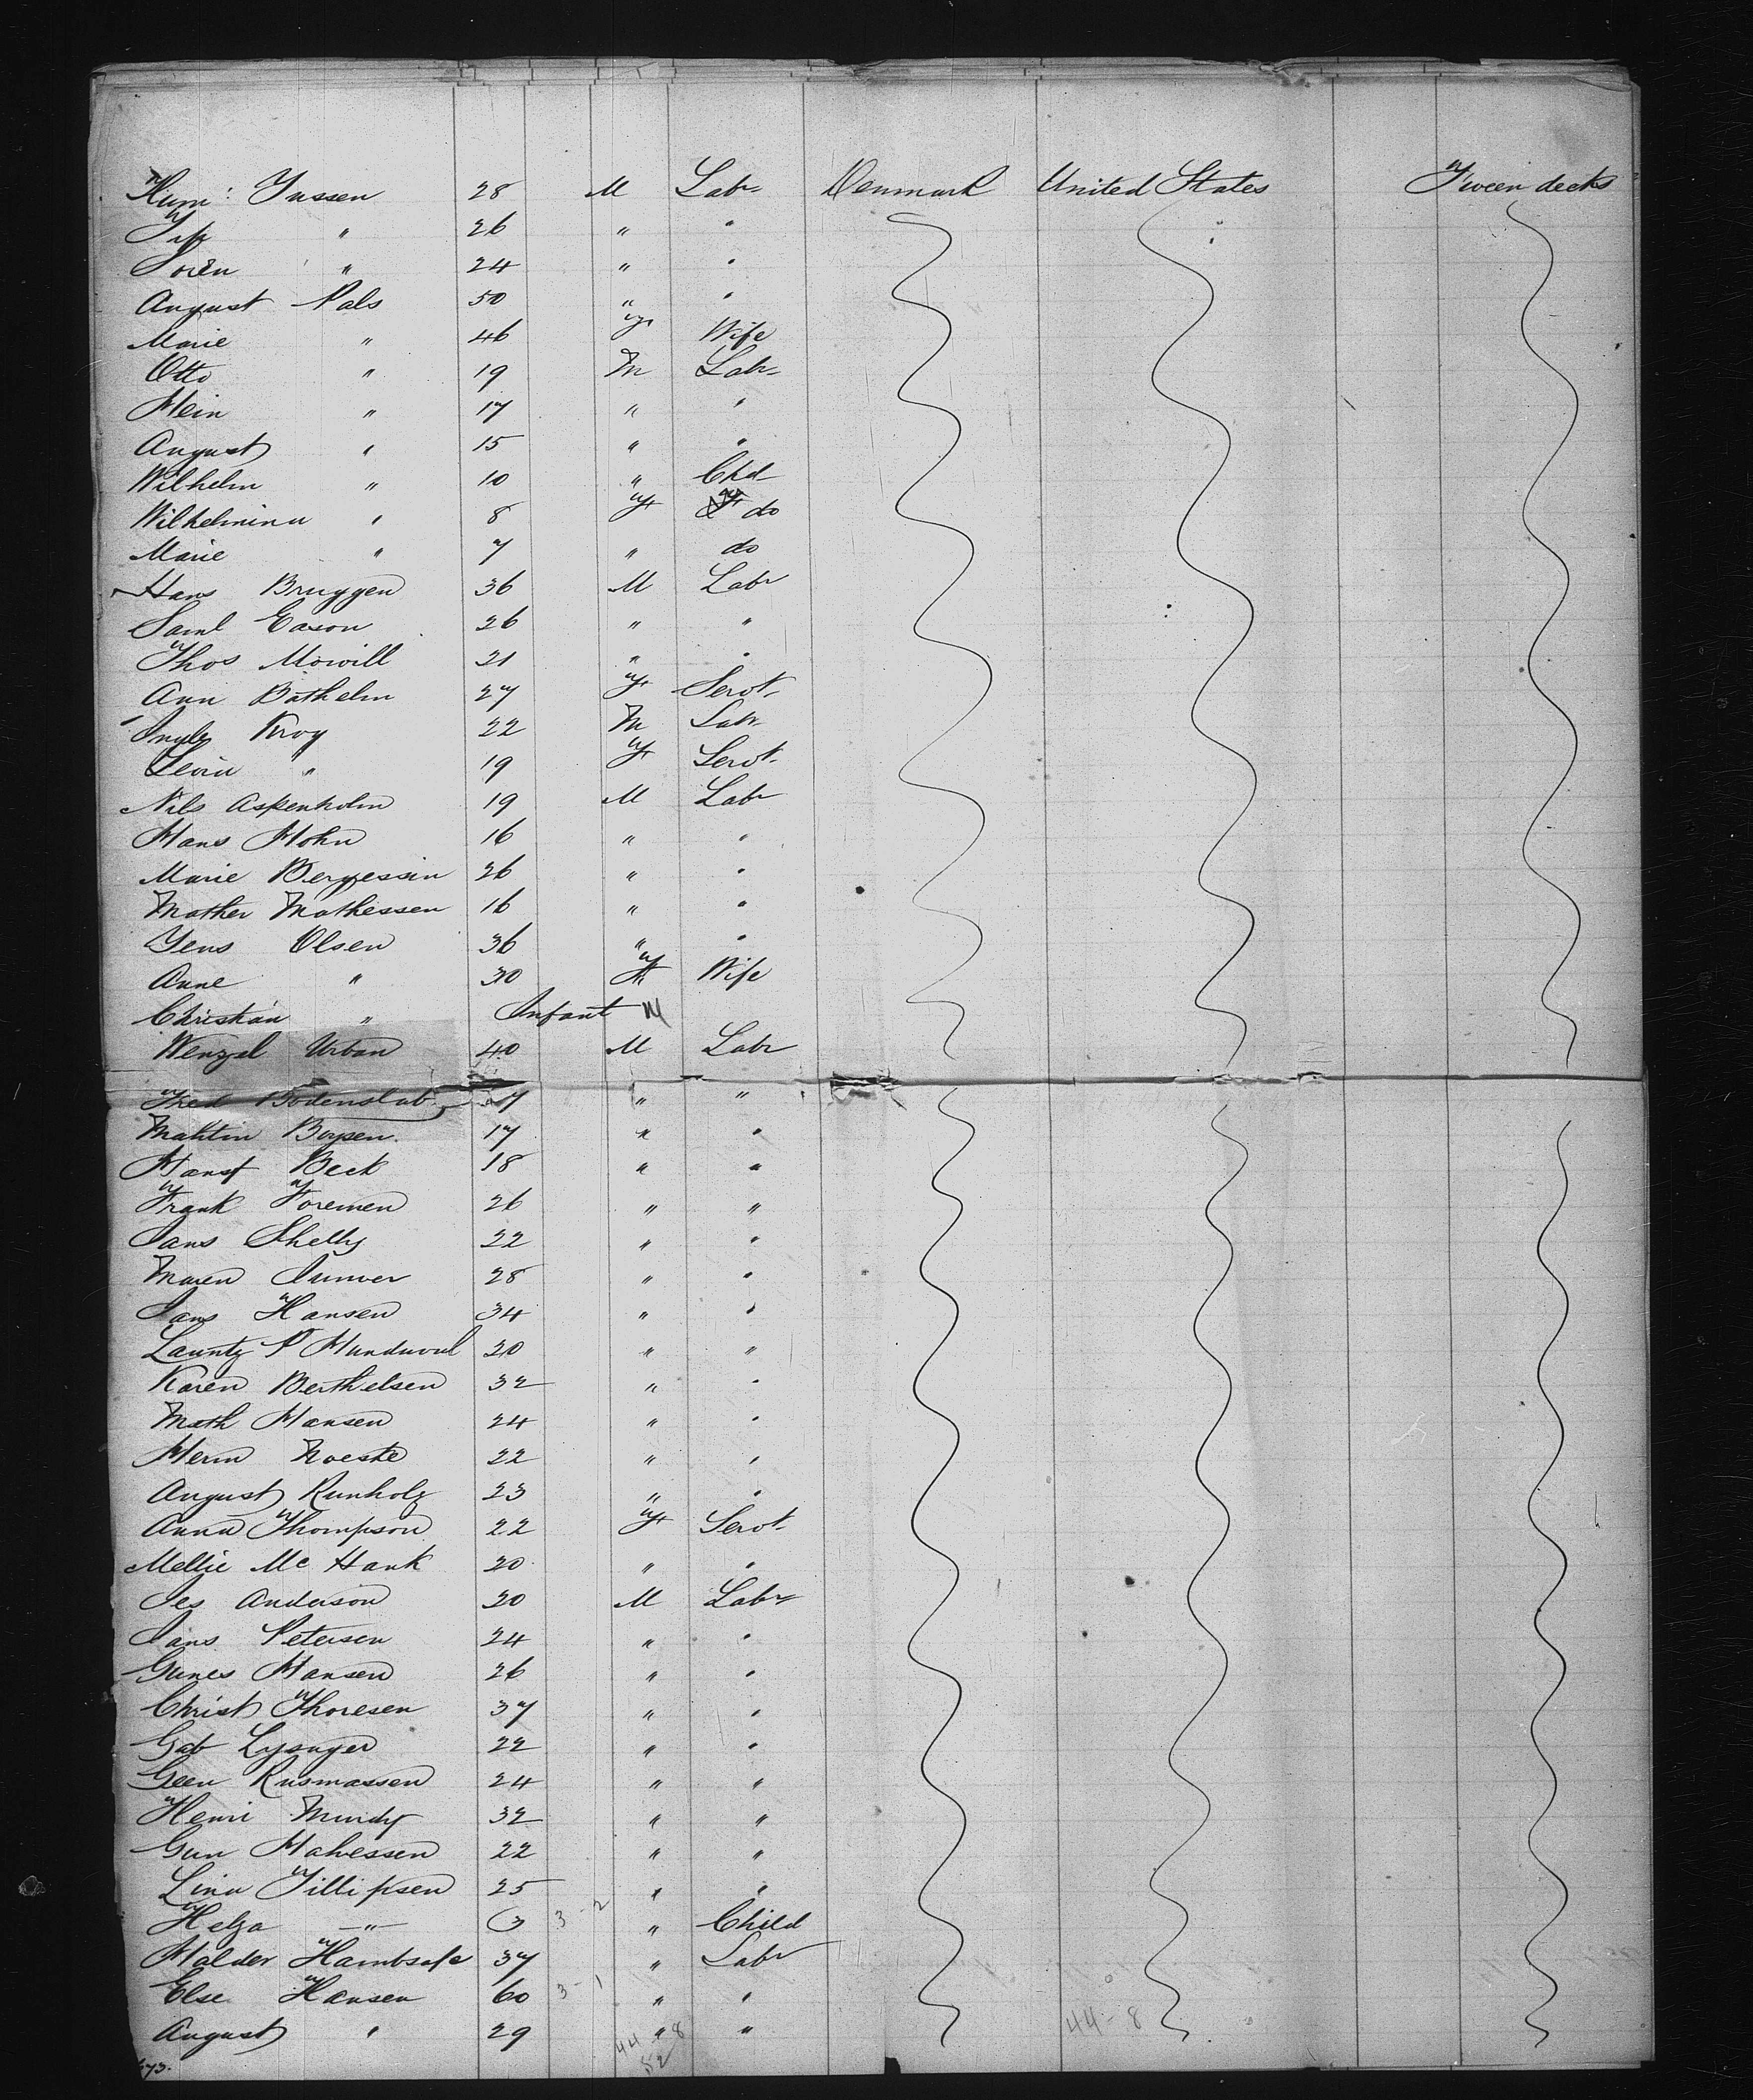 Hum: Jussen 28 M Labr Denmark United States Tween decks
" 26 " "
Soren " 24 " "
August Pals 50 " "
Marie " 46 F Wife
Otto " 19 M Labr
Hein " 17 " "
August " 15 " "
Wilhelm " 10 " Chd
Wilhelmina " 8 F do
Marie " 7 " do
Hans Bruggen 36 M Labr
Saml Eason 26 " "
Thos Mowill 21 " "
Ann Bathelm 27 F Servt
Kroy 22 M Labr
" 19 F Servt
Nils Aspenholm 19 M Labr
Hans Hohn 16 " "
Marie Bergessin 26 " "
Mather Mathessen 16 " "
Jens Olsen 36 " "
Anne " 30 F Wife
Christian " Infant M
Wenzel Urban 40 M Labr
Fred Bodenstab 7 " "
Mahtin Boysen 17 " "
Hansf Beck 18 " "
Frank Foremen 26 " "
Jans Shelly 22 " "
Maren Sumver 28 " "
Jans Hansen 34 " "
Launtz P 20 " "
Karen Berthelsen 32 " "
Math Hansen 24 " "
Herm Noeste 22 " "
August Runholz 23 " "
Anna Thompson 22 F Servt
Mellie Mc Hank 20 " "
Jes Anderson 20 M Labr
Jans Petersen 24 " "
Gunes Hansen 26 " "
Christ Thoresen 37 " "
Gab Lysager 22 " "
Geen Rusmassen 24 " "
Henri Mundy 32 " "
Gun Halvessen 22 " "
Lina Tillipsen 25 " "
Helga " 3 3-2 " Child
Halder 37 " Labr
Else Hansen 60 3-1 " "
August " 29 " "
44 8 44-8
52